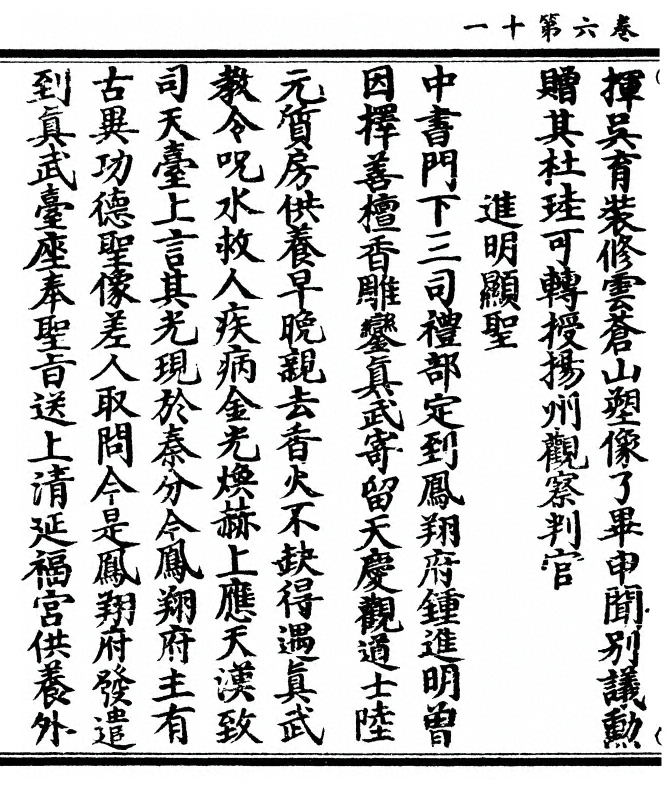 卷六第十一
揮吳育裝修雲蒼山塑像了畢申聞別議勲
贈其杜珪可轉授揚州觀察判官
進明顯聖
中書門下三司禮部定到鳳翔府鍾進明曾
因擇善檀香雕鑾真武寄留天慶觀道士陸
元質房供養早晚親去香火不缺得遇真武
教令呪水救人疾病金光煥赫上應天漢致
司天臺上言其光現於秦分今鳳翔府主有
古異功德聖像差人取問今是鳳翔府發遣
到真武臺座奉聖旨送上清延福宮供養外